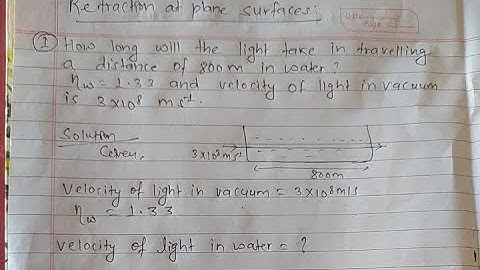 Refraction at plane surfaces:
① How long will the light take in travelling
a distance of 800m in water?
ηw = 1.33 and velocity of light in vacuum
is 3×10⁸ ms⁻¹.
Solution
Given,
3×10⁸ m/s
800m
Velocity of light in vacuum = 3×10⁸m/s
ηw = 1.33
Velocity of light in water = ?